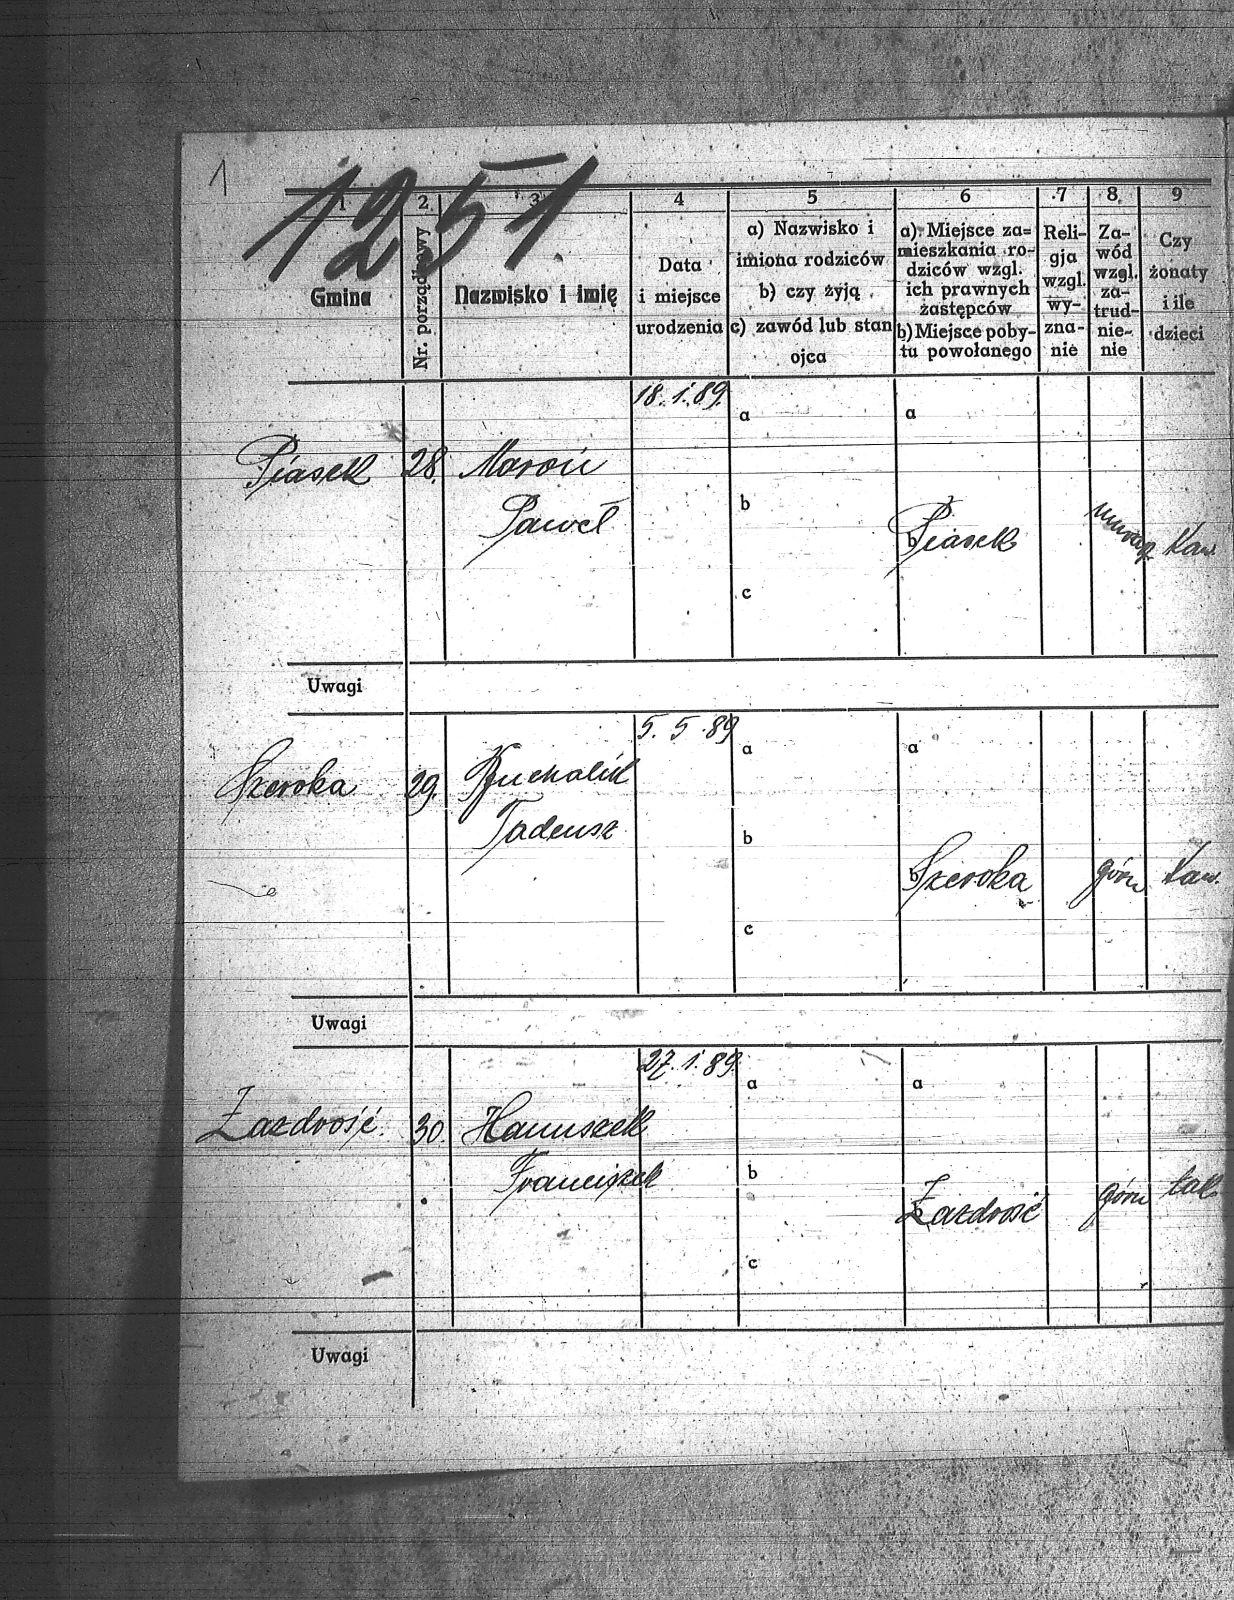 1
1251.
1 2 3 4 5 6 7 8 9
Gmina
Nr. porządkowy
Nazwisko i imię
Data
i miejsce
urodzenia
a) Nazwisko i
imiona rodziców
b) czy żyją
c) zawód lub stan
ojca
a) Miejsce za=
mieszkania ro-
dziców wzgl.
ich prawnych
zastępców
b) Miejsce poby-
tu powołanego
Reli-
gja
wzgl.
wy-
zna-
nie
Za-
wód
wzgl.
za-
trud-
nie-
nie
Czy
żonaty
i ile
dzieci
18.1.89.
a a
Piasek 28. Maroń
Paweł
b
b Piasek murarz Kaw.
c
Uwagi
5.5.89
a a
Szeroka 29. Puchalik
Tadeusz
b
b Szeroka górn Kaw.
c
Uwagi
27.1.89.
a a
Zazdrość. 30. Hanuszek
Franciszek
b
b Zazdrość górn tak
c
Uwagi